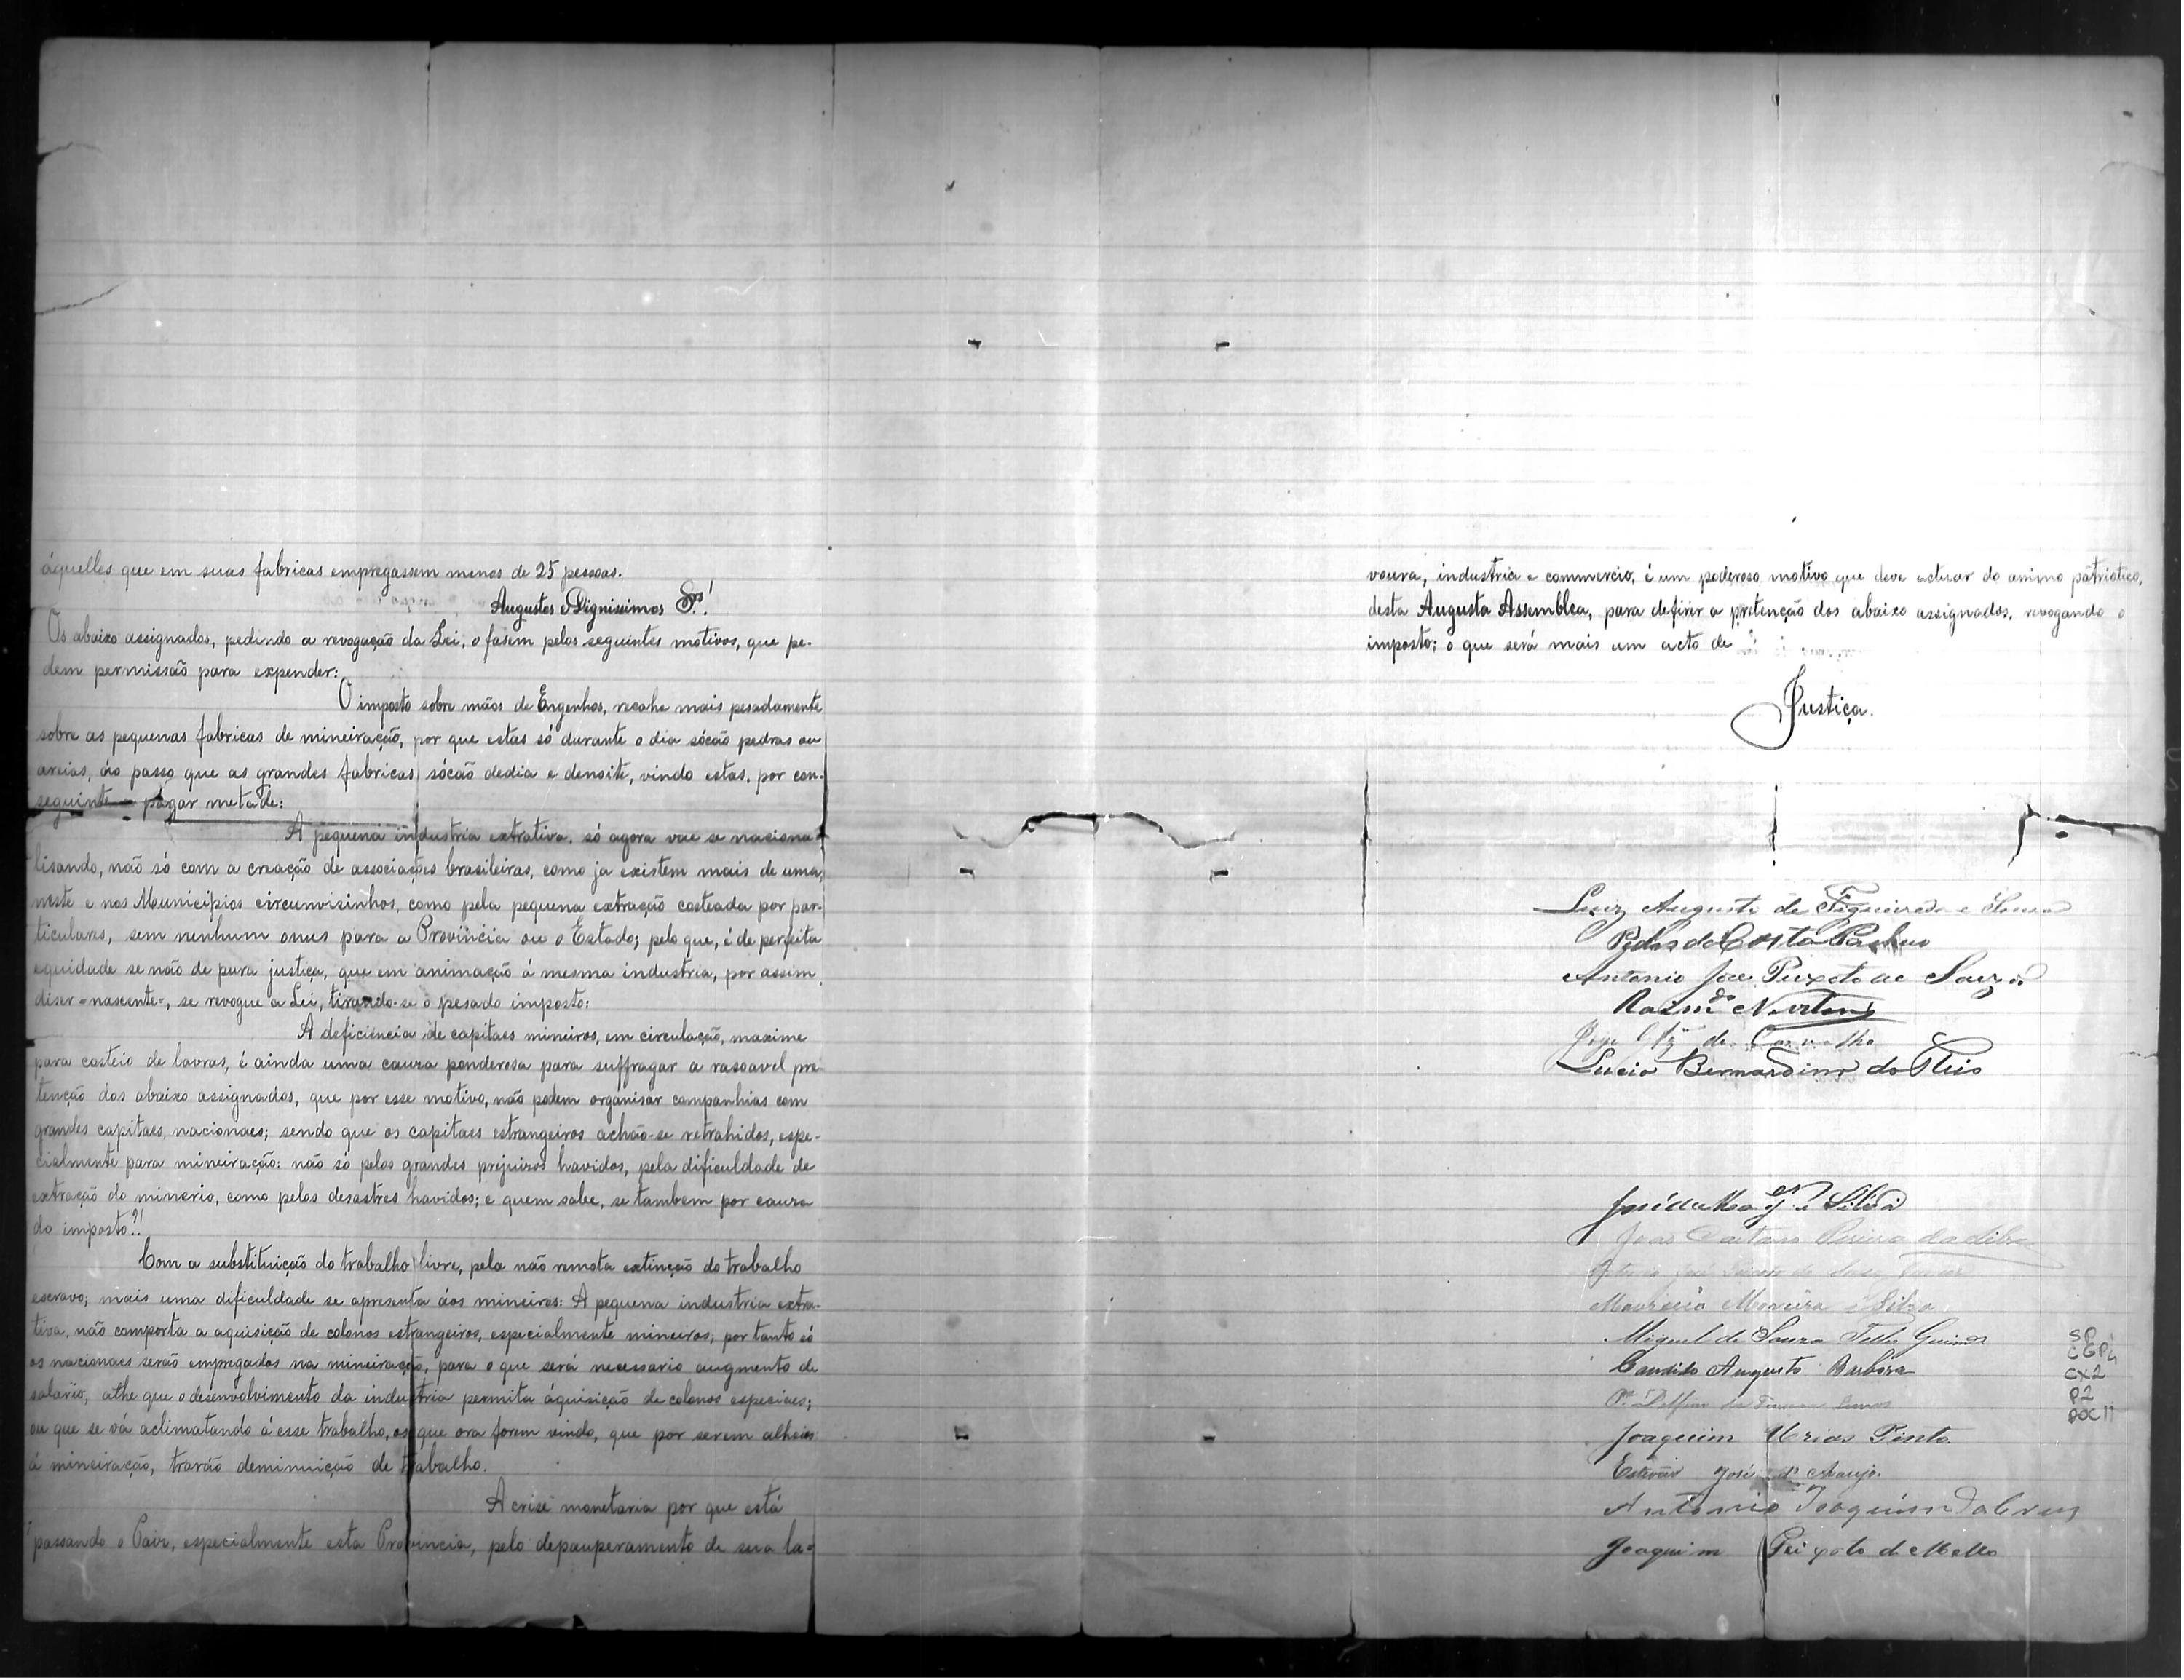 áquelles que em suas fabricas empregassem menos de 25 pessoas.
Augustos e Dignissimos Srs!
Os abaixo assignados, pedindo a revogação da Lei, o fasem pelos seguintes motivos, que pe-
dem permissão para expender:
O imposto sobre mãos de Engenhos, recahe mais pesadamente
sobre as pequenas fabricas de mineiração, por que estas só durante o dia sócão pedras ou
areias, áo passo que as grandes fabricas sócão dedia e denoite, vindo estas, por con-
seguinte - pagar metade:
A pequena industria extrativa, só agora vae se naciona-
lisando, não só com a creação de associações brasileiras, como ja existem mais de uma,
neste e nos Municipios circunvisinhos, como pela pequena extração costeada por par-
ticulares, sem nenhum onus para a Provincia ou o Estado; pelo que, é de perfeita
equidade se não de pura justiça, que em animação á mesma industria, por assim
diser =nascente=, se revogue a Lei, tirando-se o pesado imposto:
A deficiencia de capitaes mineiros, em circulação, maxime
para costeio de lavras, é ainda uma causa ponderosa para suffragar a rasoavel pre-
tenção dos abaixo assignados, que por esse motivo, não podem organisar companhias com
grandes capitaes, nacionaes; sendo que os capitaes estrangeiros achão-se retrahidos, espe-
cialmente para mineiração: não só pelos grandes prejuizos havidos, pela dificuldade de
extração do minerio, como pelos desastres havidos; e quem sabe, se tambem por causa
do imposto?!
Com a substituição do trabalho livre, pela não remota extinção do trabalho
escravo; mais uma dificuldade se apresenta áos mineiros: A pequena industria extra-
tiva, não comporta a aquisição de colonos estrangeiros, especialmente mineiros; por tanto só
os nacionaes serão empregados na mineiração, para o que será necessario augmento de
salario, athe que o desenvolvimento da industria permita áquisição de colonos especiaes;
ou que se vá aclimatando á esse trabalho, os que ora forem vindo, que por serem alheios
á mineiração, trarão deminuição de trabalho.
A crise monetaria por que está
passando o Paiz, especialmente esta Provincia, pelo depauperamento de sua la-
voura, industria e commercio, é um poderoso motivo que deve actuar do animo patriotico,
desta Augusta Assemblea, para defirir a pretenção dos abaixo assignados, revogando o
imposto; o que será mais um acto de
Justiça.
Luiz Augusto de Figueiredo e Souza
Pedro da Costa Pacheco
Antonio José Peixoto de Souza
Raimdo
de Carvalho
Lucio Bernardino do Reis
e Silva
João Caetano Pereira da Silva
José de
Moreira e Silva
Miguel de Souza Telles Guimes
Candido Augusto Barbosa
Joaquim Urias Pinto.
Estevão José de Araujo.
Antonio Joaquim da Cruz
Joaquim Peixoto de Mello
SP
CGP4
CX2
P2
DOC11